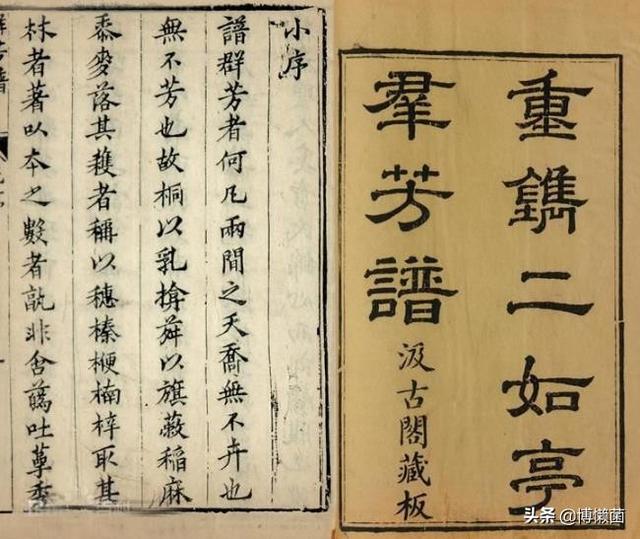 重鐫二如亭
羣芳譜
汲古閣藏板
小序
譜群芳者何凡兩間之天喬無不卉也
無不芳也故桐以乳揜蕣以旗蔽稻麻
黍麥落其穫者稱以穗榛楩楠梓取其
材者著以夲之數者孰非含蘤吐萼香
群芳譜
头条 @博懒菌